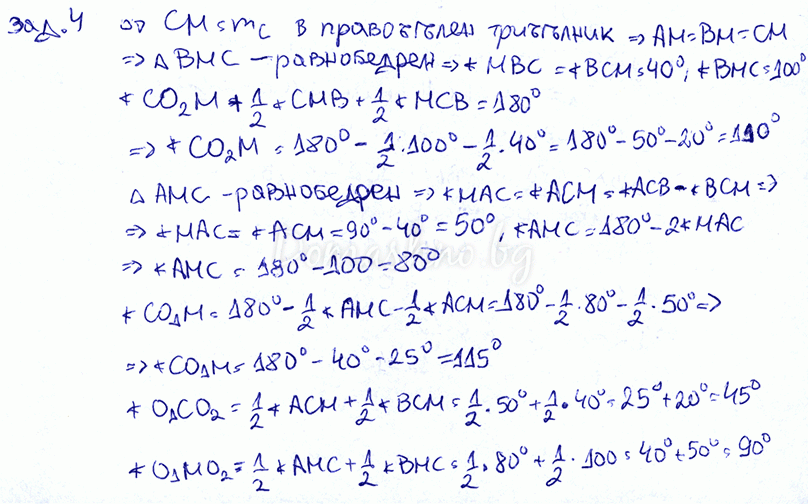 зад.4 от CM=m_c в правоъгълен триъгълник => AM=BM=CM
=> ΔBMC - равнобедрен => ∢MBC = ∢BCM=40°, ∢BMC=100°
∢CO₂M + 1/2 ∢CMB + 1/2 ∢MCB = 180°
=> ∢CO₂M = 180° - 1/2.100° - 1/2.40° = 180° - 50° - 20° = 110°
ΔAMC - равнобедрен => ∢MAC = ∢ACM = ∢ACB - ∢BCM =>
=> ∢MAC = ∢ACM = 90° - 40° = 50°, ∢AMC = 180° - 2∢MAC
=> ∢AMC = 180° - 100 = 80°
∢CO₁M = 180° - 1/2 ∢AMC - 1/2 ∢ACM = 180° - 1/2.80° - 1/2.50° =>
=> ∢CO₁M = 180° - 40° - 25° = 115°
∢O₁CO₂ = 1/2 ∢ACM + 1/2 ∢BCM = 1/2.50° + 1/2.40° = 25° + 20° = 45°
∢O₁MO₂ = 1/2 ∢AMC + 1/2 ∢BMC = 1/2.80° + 1/2.100 = 40° + 50° = 90°